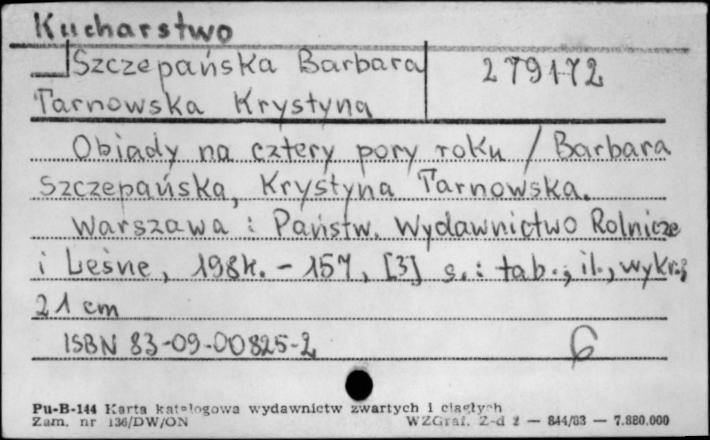 Kucharstwo
Szczepańska Barbara 279172
Tarnowska Krystyna
Obiady na cztery pory roku / Barbara
Szczepańska, Krystyna Tarnowska.
Warszawa : Państw. Wydawnictwo Rolnicze
i Leśne, 1984. – 157, [3] s. : tab., il., wykr.;
21 cm
ISBN 83-09-00825-2 6
Pu-B-144 Karta katalogowa wydawnictw zwartych i ciągłych
Zam. nr 136/DW/ON WZGraf. Z-d 2 — 844/83 — 7.880.000